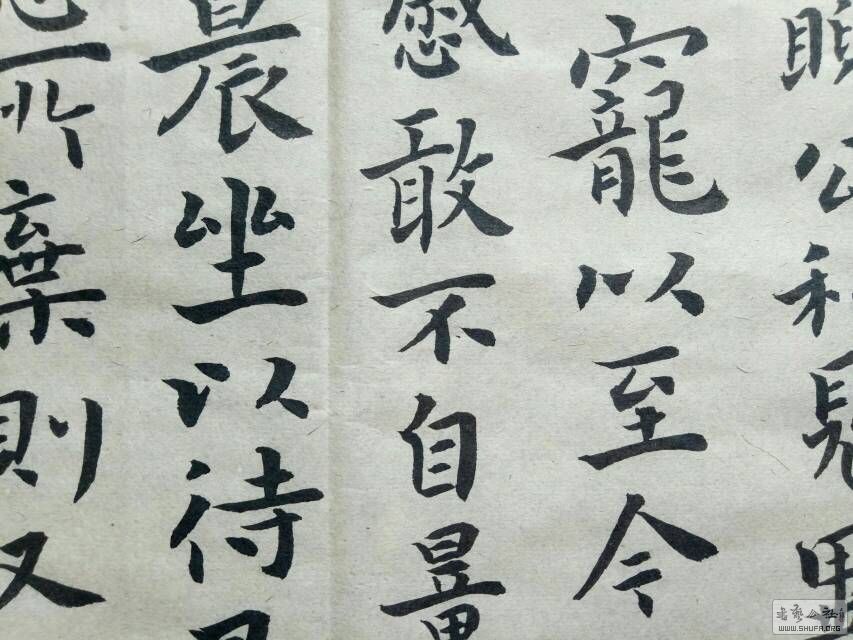 公私見
寵以至今
敢不自量
晨坐以待
所棄則又
書藝公社
WWW.SHUFA.ORG